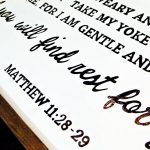 EARY AND
TAKE MY YOKE
FOR I AM GENTLE AND
you will find rest for
MATTHEW 11:28-29